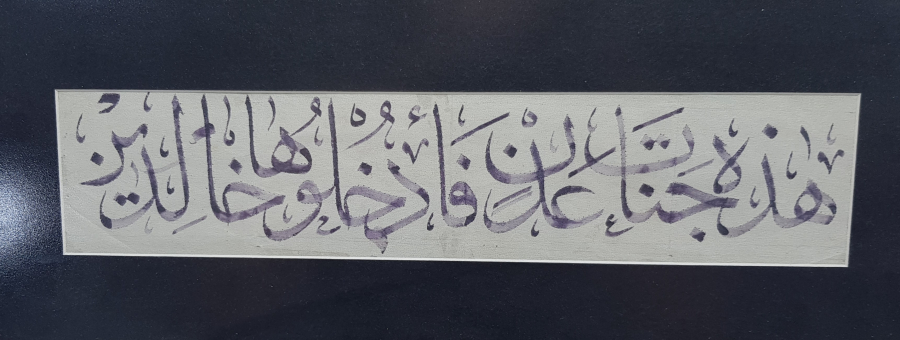 هذه جنات عدن فأدخلوها خالدين